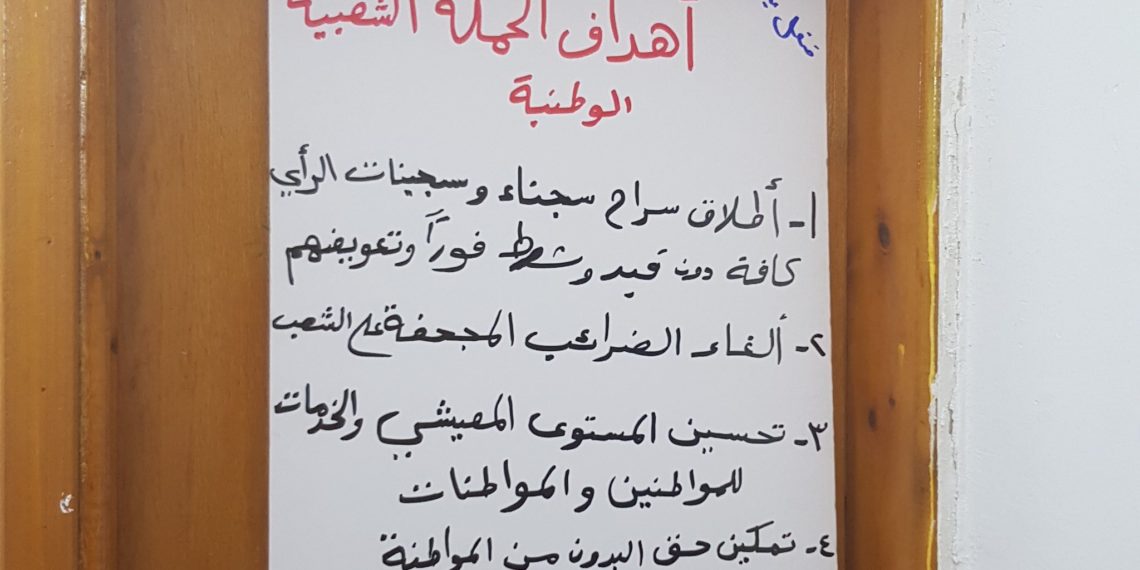 أهداف الحملة الشعبية
الوطنية
١- أطلاق سراح سجناء وسجينات الرأي
كافة دون قيد وشرط فوراً وتعويضهم
٢- ألغاء الضرائب المجحفة على الشعب
٣- تحسين المستوى المعيشي والخدمات
للمواطنين والمواطنات
٤- تمكين حق البدون من المواطنة